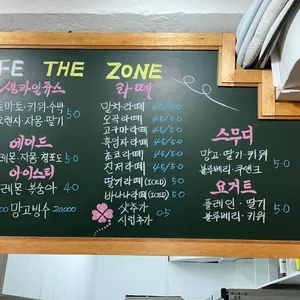 FE THE ZONE
생과일쥬스
토마토·키위·수박
오렌지·자몽·딸기 5.0
에이드
레몬·자몽·청포도 5.0
아이스티
레몬 복숭아 4.0
망고빙수 20,000
라떼
말차라떼 4.5/5.0
오곡라떼 4.5/5.0
고구마라떼 4.5/5.0
흑임자라떼 4.5/5.0
초코라떼 4.5/5.0
진저라떼 4.5/5.0
딸기라떼(ICED) 5.0
바나나라떼(ICED) 5.0
샷추가
시럽추가 0.5
스무디
망고·딸기·키위
블루베리·쿠앤크 5.0
요거트
플레인·딸기
블루베리·키위 5.0